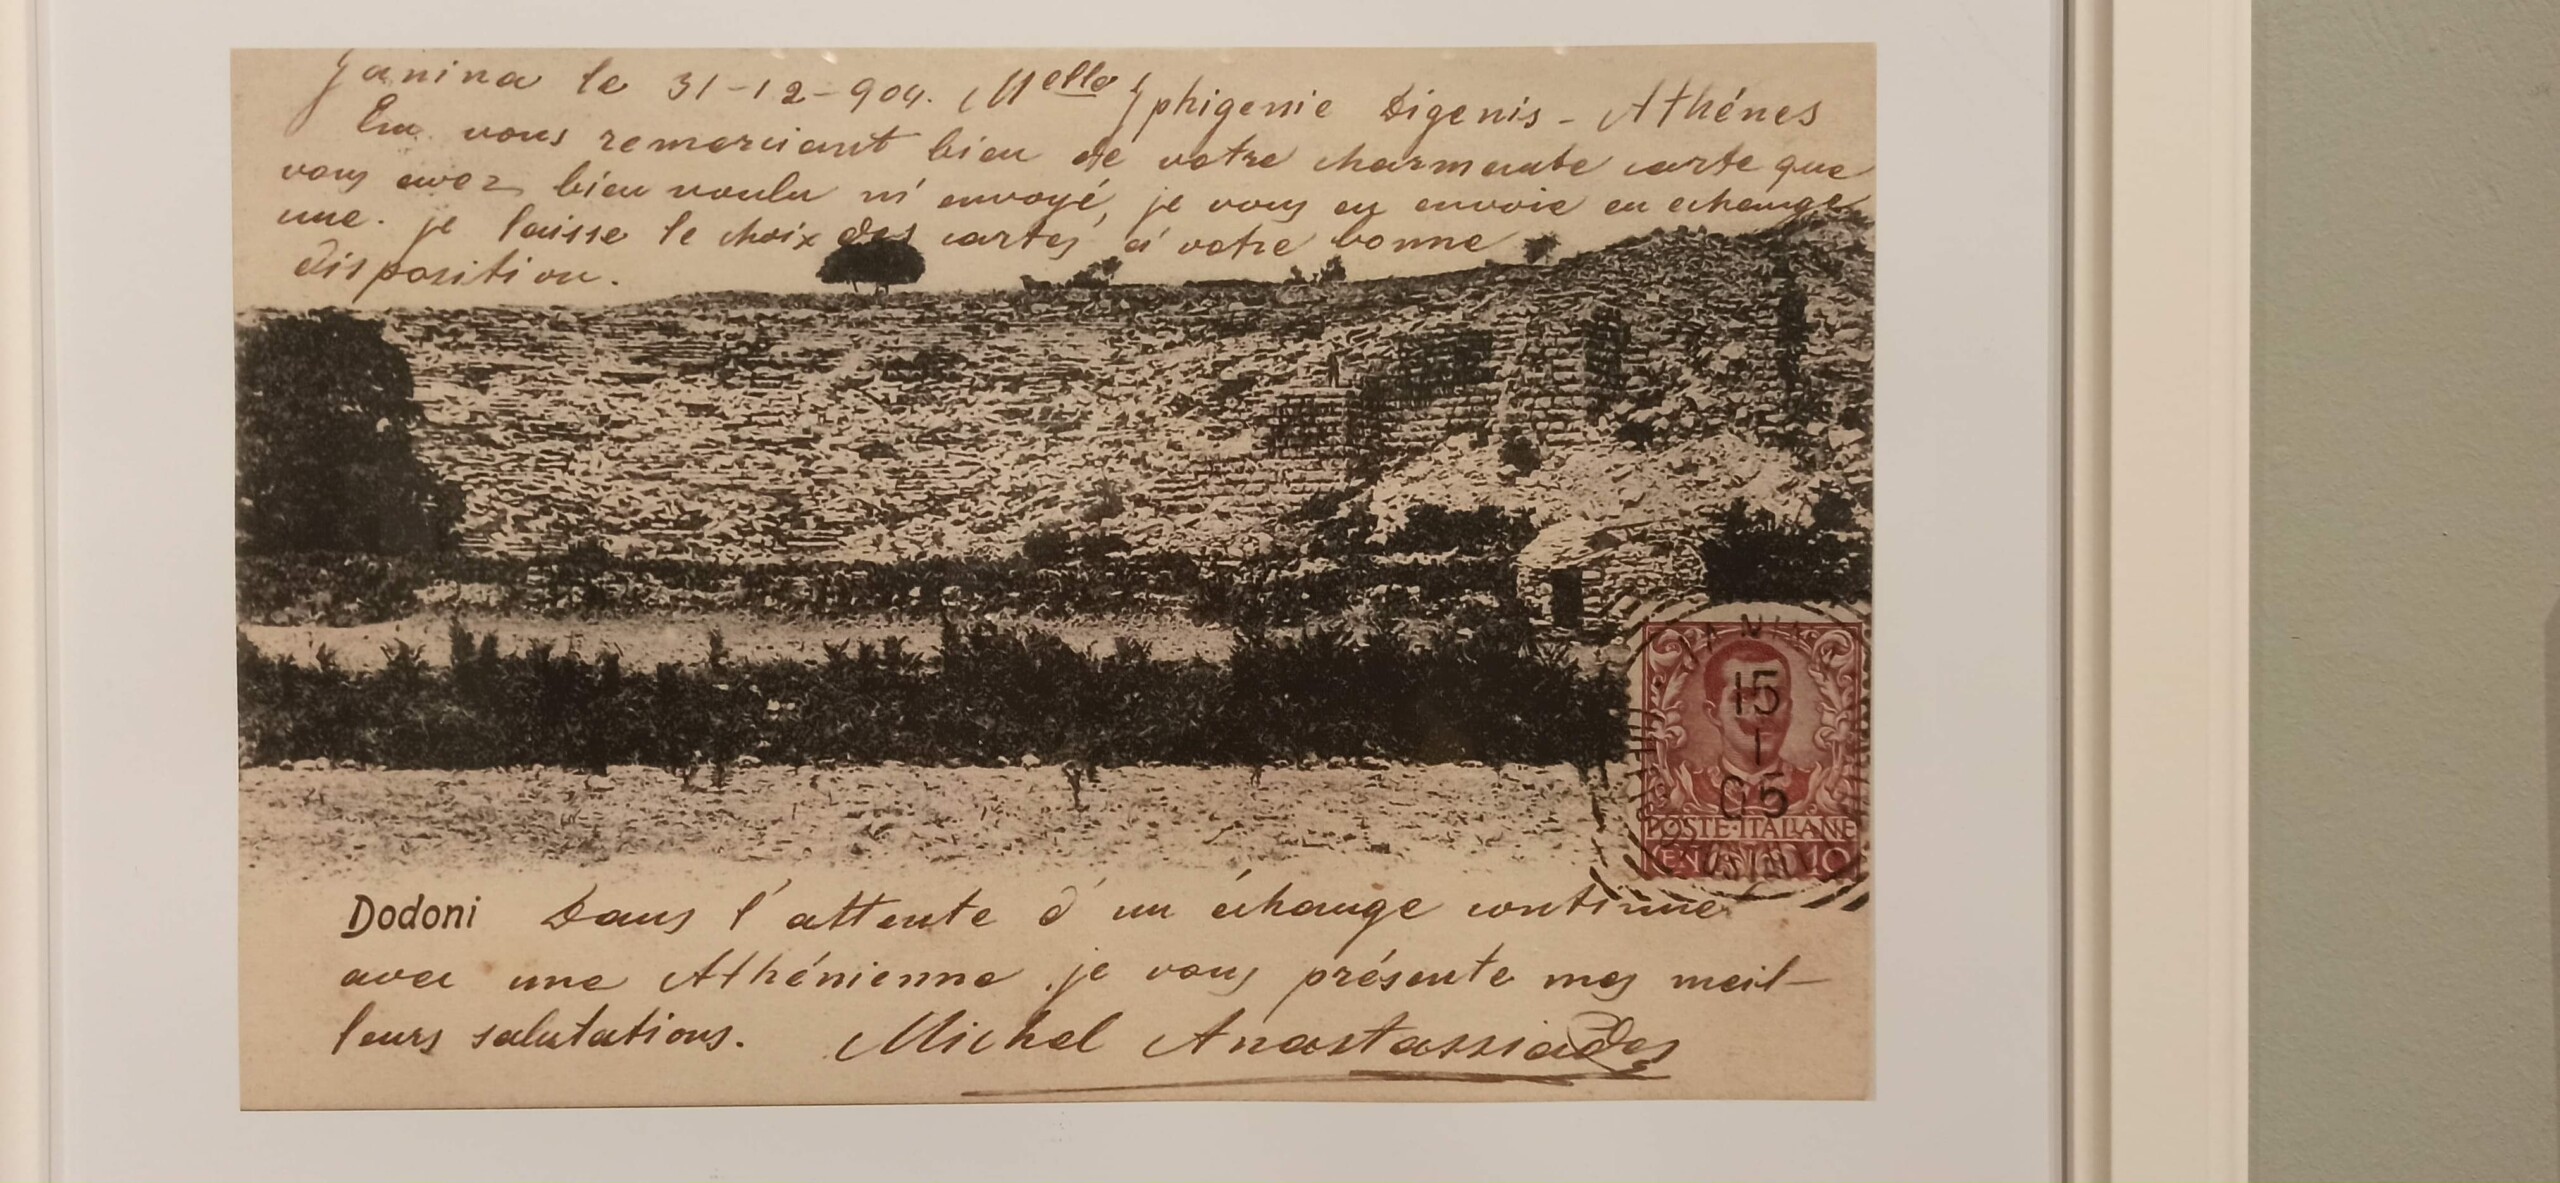 Janina le 31-12-904. Melle Iphigenie Digenis - Athénes
En vous remerciant bien de votre charmante carte que
vous avez bien voulu m'envoyé, je vous en envoie en echange
une. je laisse le choix des cartes à votre bonne
disposition.
JANINA
15
1
05
POSTE·ITALIANE
CENTESIMI 10
Dodoni Dans l'attente d'un échange continue
avec une Athénienne je vous présente mes meil-
leurs salutations. Michel Anastassiades